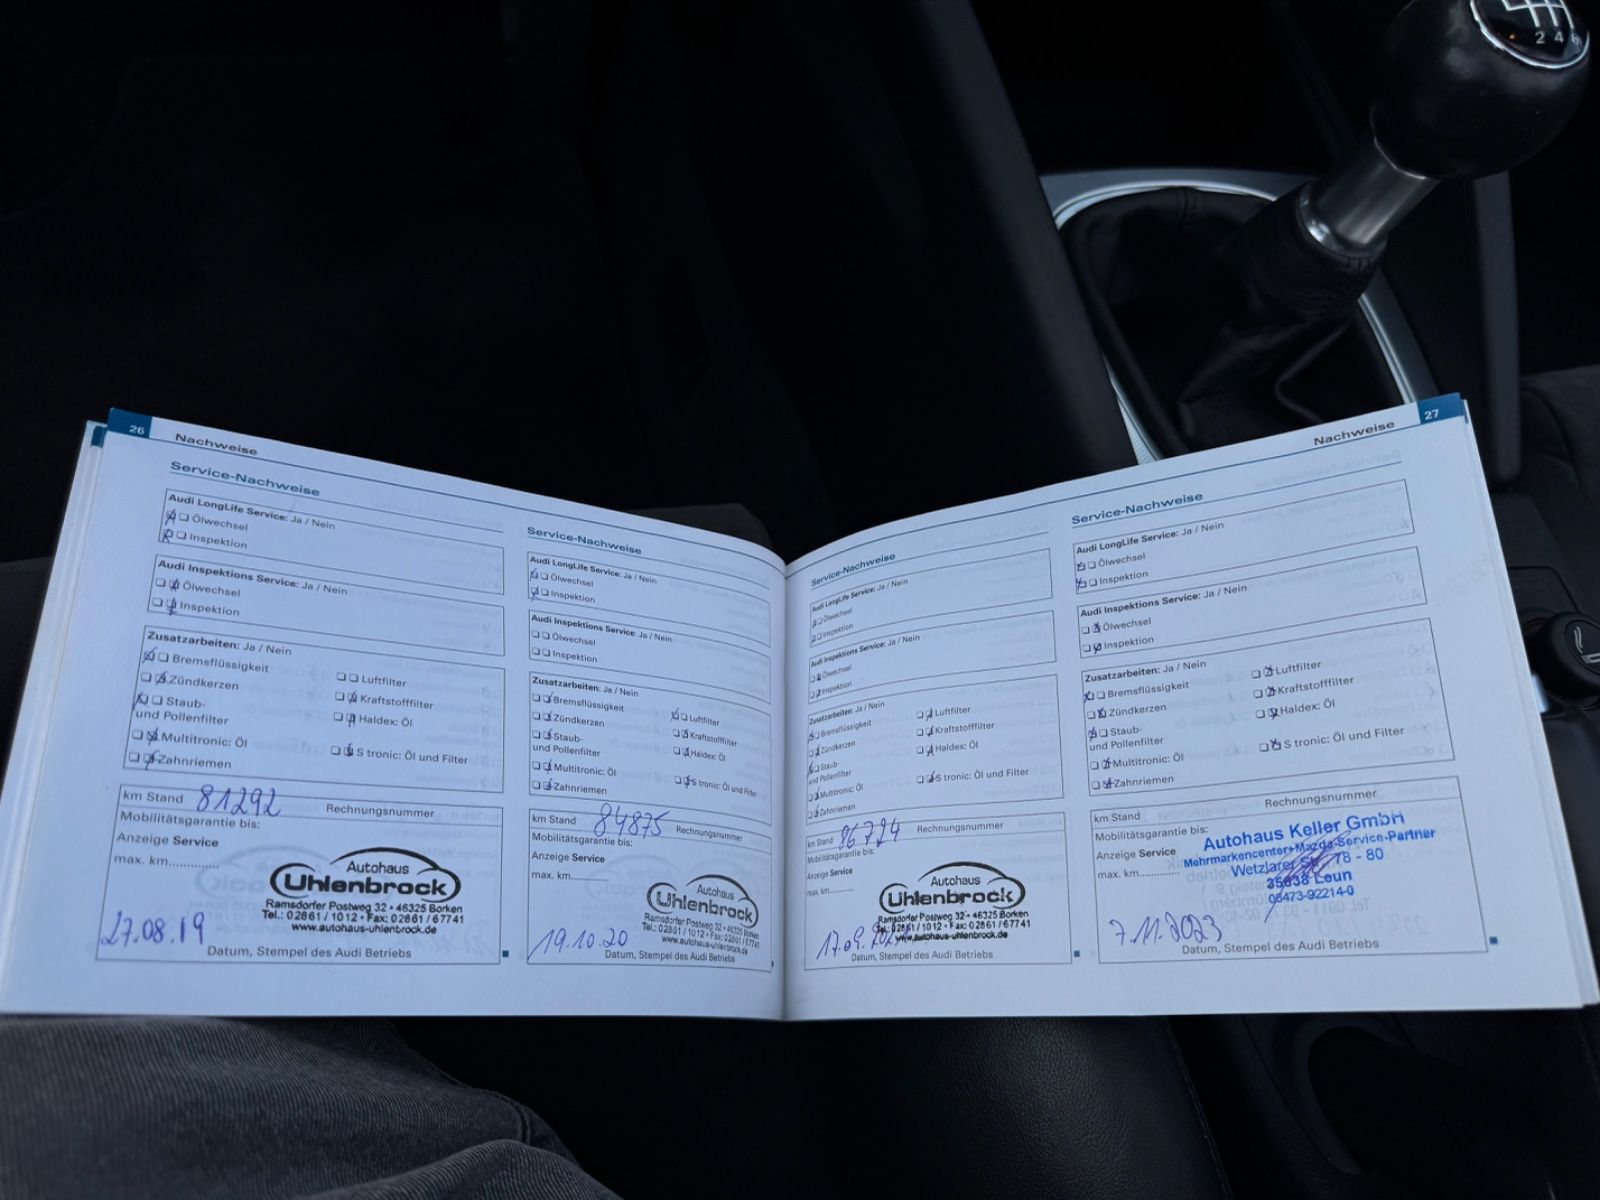 2 4 6
26
Nachweise
Service-Nachweise
Audi LongLife Service: Ja / Nein
Ölwechsel
Inspektion
Audi Inspektions Service: Ja / Nein
Ölwechsel
Inspektion
Zusatzarbeiten: Ja / Nein
Bremsflüssigkeit
Luftfilter
Zündkerzen
Kraftstofffilter
Staub-
und Pollenfilter
Haldex: Öl
Multitronic: Öl
S tronic: Öl und Filter
Zahnriemen
km Stand 81292
Rechnungsnummer
Mobilitätsgarantie bis:
Anzeige Service
max. km..............
Autohaus
Uhlenbrock
Ramsdorfer Postweg 32 • 46325 Borken
Tel.: 0 28 61 / 10 12 • Fax: 0 28 61 / 6 77 41
www.autohaus-uhlenbrock.de
27.08.19
Datum, Stempel des Audi Betriebs
Service-Nachweise
Audi LongLife Service: Ja / Nein
Ölwechsel
Inspektion
Audi Inspektions Service: Ja / Nein
Ölwechsel
Inspektion
Zusatzarbeiten: Ja / Nein
Bremsflüssigkeit
Luftfilter
Zündkerzen
Kraftstofffilter
Staub-
und Pollenfilter
Haldex: Öl
Multitronic: Öl
S tronic: Öl und Filter
Zahnriemen
km Stand 84875
Rechnungsnummer
Mobilitätsgarantie bis:
Anzeige Service
max. km............
Autohaus
Uhlenbrock
Ramsdorfer Postweg 32 • 46325 Borken
Tel.: 0 28 61 / 10 12 • Fax: 0 28 61 / 6 77 41
www.autohaus-uhlenbrock.de
19.10.20
Datum, Stempel des Audi Betriebs
27
Nachweise
Service-Nachweise
Audi LongLife Service: Ja / Nein
Ölwechsel
Inspektion
Audi Inspektions Service: Ja / Nein
Ölwechsel
Inspektion
Zusatzarbeiten: Ja / Nein
Bremsflüssigkeit
Luftfilter
Zündkerzen
Kraftstofffilter
Staub-
und Pollenfilter
Haldex: Öl
Multitronic: Öl
S tronic: Öl und Filter
Zahnriemen
km Stand 86724
Rechnungsnummer
Mobilitätsgarantie bis:
Anzeige Service
max. km..........
Autohaus
Uhlenbrock
Ramsdorfer Postweg 32 • 46325 Borken
Tel.: 0 28 61 / 10 12 • Fax: 0 28 61 / 6 77 41
www.autohaus-uhlenbrock.de
Datum, Stempel des Audi Betriebs
Service-Nachweise
Audi LongLife Service: Ja / Nein
Ölwechsel
Inspektion
Audi Inspektions Service: Ja / Nein
Ölwechsel
Inspektion
Zusatzarbeiten: Ja / Nein
Bremsflüssigkeit
Luftfilter
Zündkerzen
Kraftstofffilter
Staub-
und Pollenfilter
Haldex: Öl
Multitronic: Öl
S tronic: Öl und Filter
Zahnriemen
km Stand
Rechnungsnummer
Mobilitätsgarantie bis:
Anzeige Service
max. km..............
Autohaus Keller GmbH
Mehrmarkencenter+Mazda-Service-Partner
Wetzlarer Str. 78 - 80
35638 Leun
06473-92214-0
7.11.2023
Datum, Stempel des Audi Betriebs